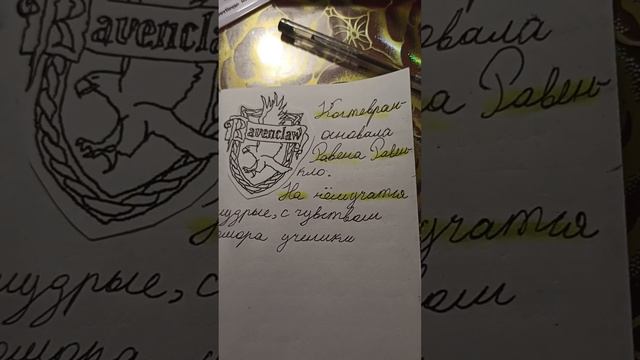 Ravenclaw
Когтевран-
основала
Равена Равень-
кло.
На нём учатся
мудрые, с чувством
юмора ученики